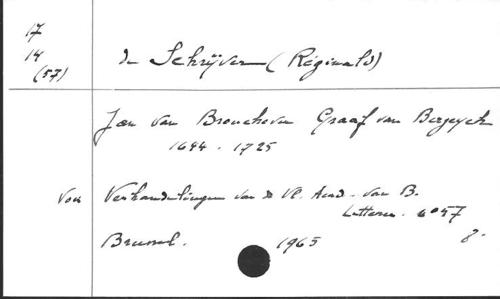 17
14
(57)
de Schrijver (Réginald)
Jan van Brouchoven Graaf van Bergeyck
1644 - 1725
Voir Verhandelingen van de Vl. Acad. van B.
Letteren. no 57
Brussel. 1965 8.